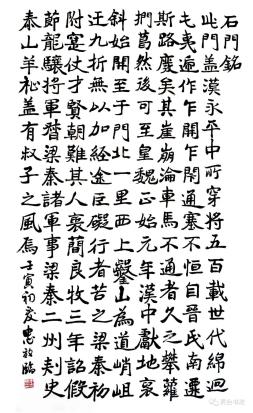 石門銘
此門蓋漢永平中所穿將五百載世代綿迴
屯夷遞作乍開乍閉通塞不恒自晉氏南遷
斯路廢矣其崖崩淪車馬不通者久之攀蘿
捫葛然後可至皇魏正始元年漢中獻地褒
斜始開至于門北一里西上鑿山為道峭岨
迂九折無以加經途巨礙行者苦之梁秦初
附寔仗才賢朝難其人褒簡良牧三年詔假
節龍驤將軍督梁秦諸軍事梁秦二州刺史
泰山羊祉蓋有叔子之風焉 壬寅初夏忠臨